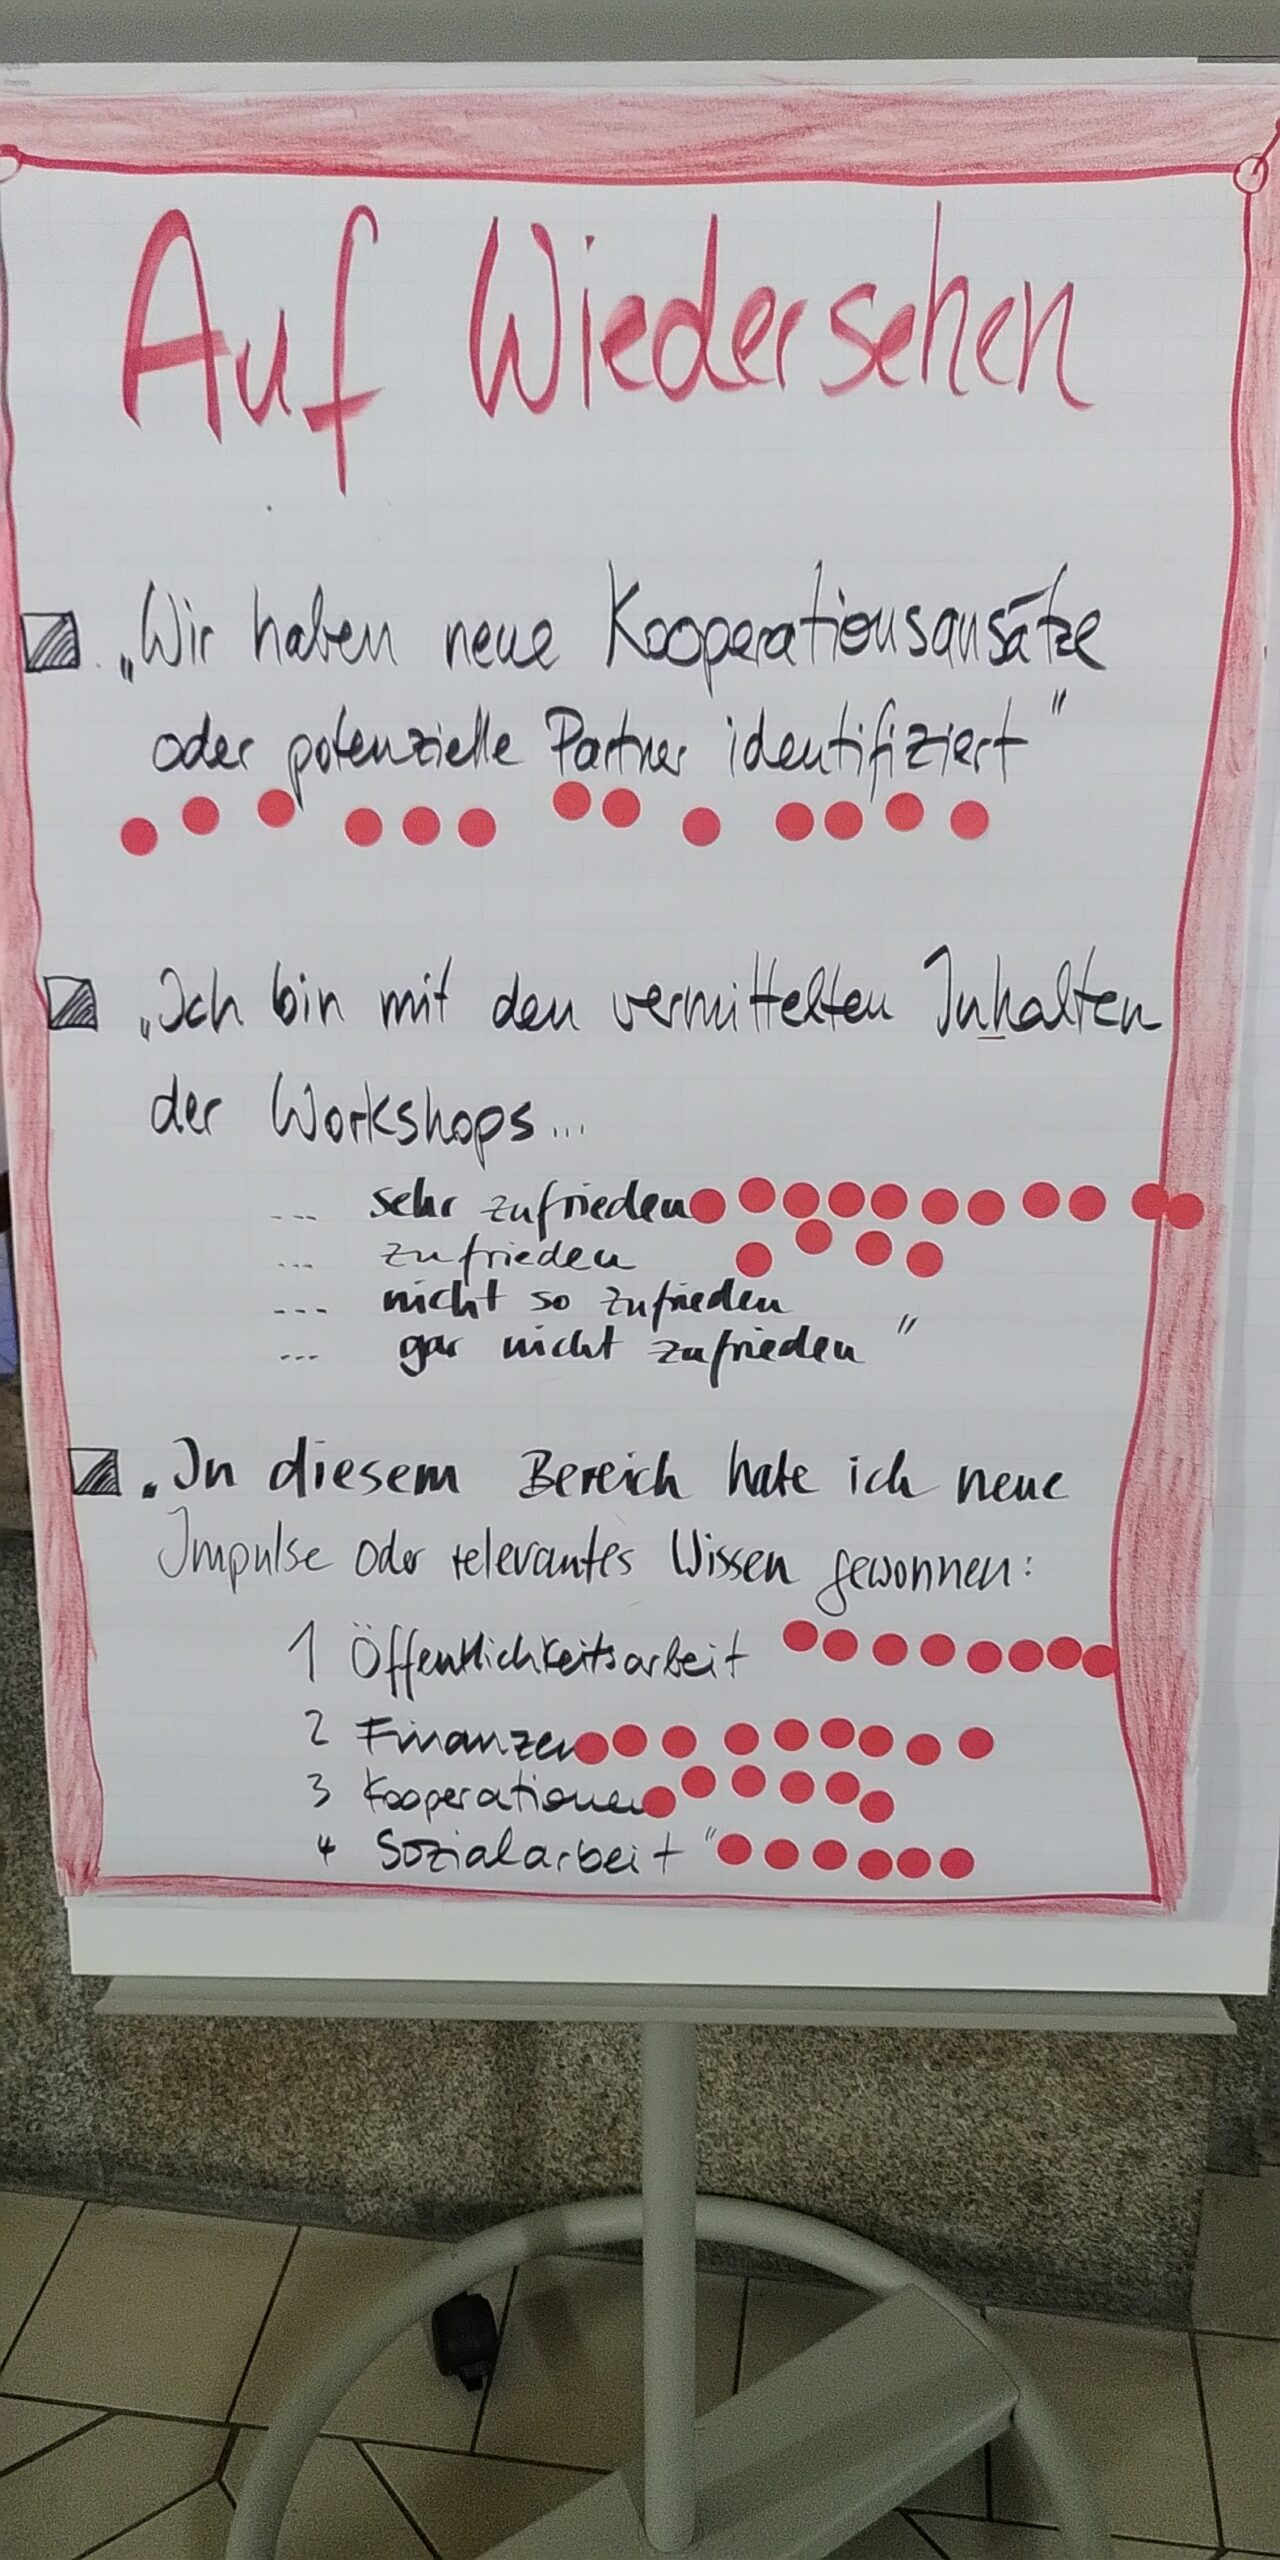 Auf Wiedersehen
„Wir haben neue Kooperationsansätze
oder potenzielle Partner identifiziert"
„Ich bin mit den vermittelten Inhalten
der Workshops...
... sehr zufrieden
... zufrieden
... nicht so zufrieden
... gar nicht zufrieden"
„In diesem Bereich habe ich neue
Impulse oder relevantes Wissen gewonnen:
1 Öffentlichkeitsarbeit
2 Finanzen
3 Kooperationen
4 Sozialarbeit"